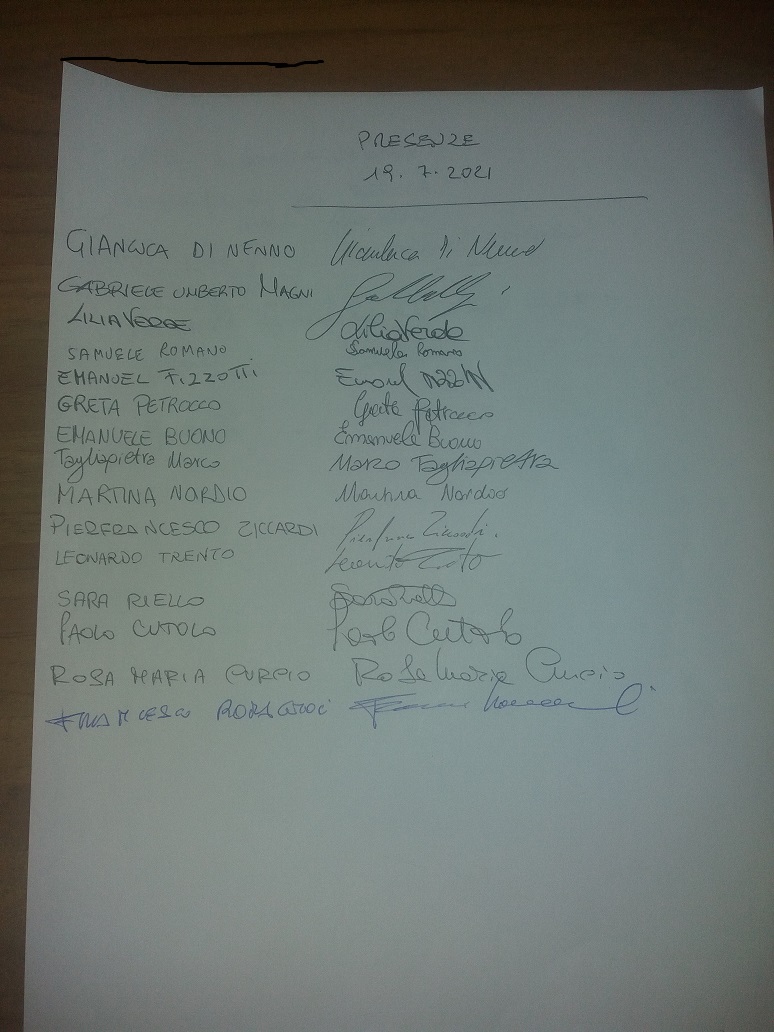 PRESENZE
19.7.2021
GIANLUCA DI NENNO Gianluca Di Nenno
GABRIELE UMBERTO MAGNI
LILIA VERDE Lilia Verde
SAMUELE ROMANO Samuele Romano
EMANUEL FIZZOTTI
GRETA PETROCCO Greta Petrocco
EMANUELE BUONO Emanuele Buono
Tagliapietra Marco Marco Tagliapietra
MARTINA NORDIO Martina Nordio
PIERFRANCESCO ZICCARDI
LEONARDO TRENTO
SARA RIELLO
PAOLO CUTOLO Paolo Cutolo
ROSA MARIA CURCIO Rosa Maria Curcio
FRANCESCO